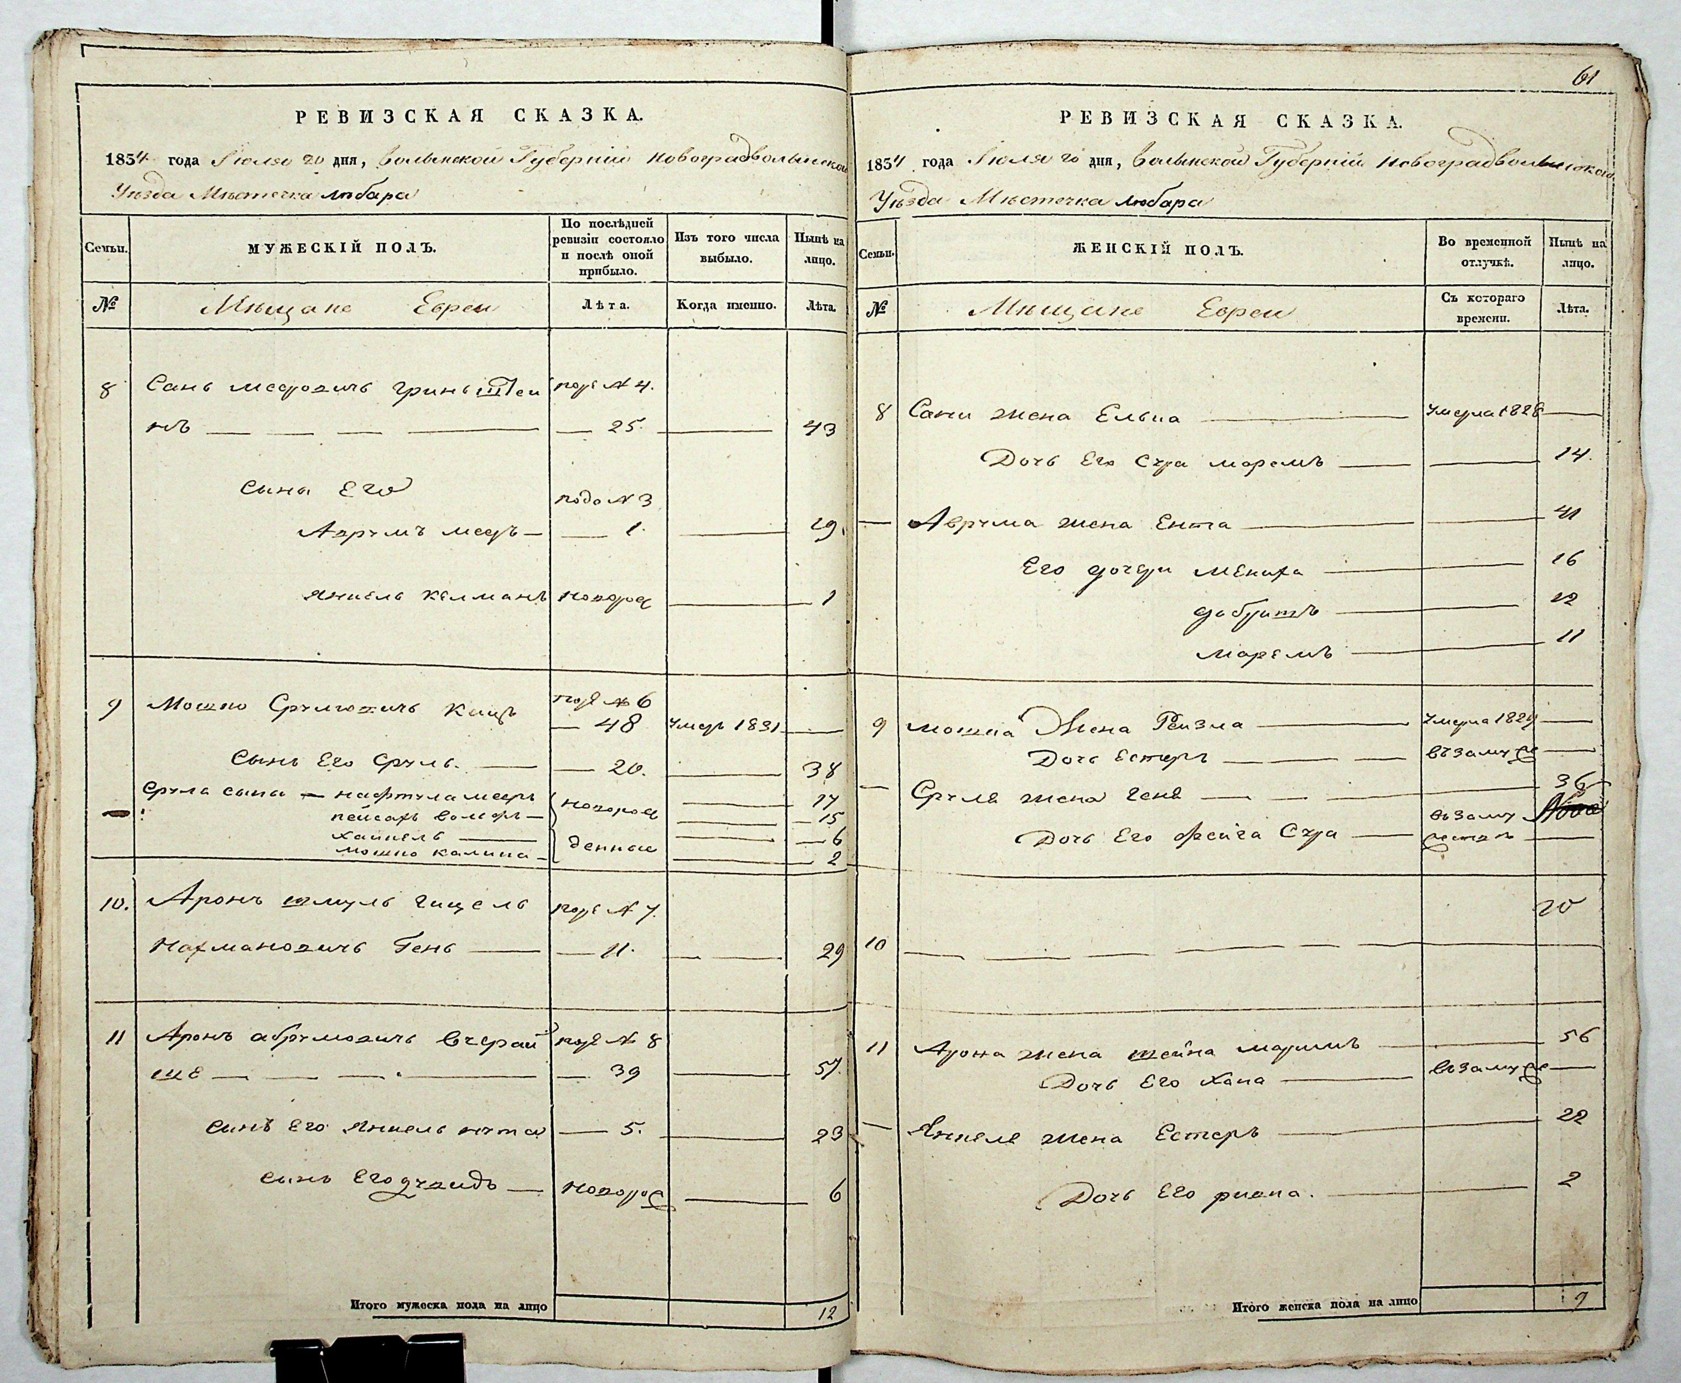 РЕВИЗСКАЯ СКАЗКА.
1834 года Іюля 20 дня, Волынской Губерніи Новоградволынскаго
Уѣзда Мѣстечка Любара
Семьи.
МУЖЕСКІЙ ПОЛЪ.
По послѣдней ревизіи состояло и послѣ оной прибыло.
Изъ того числа выбыло.
Нынѣ на лицо.
№
Мѣщане Евреи
Лѣта.
Когда именно.
Лѣта.
8 Сань Меэровичь Гринштеи под № 4.
нъ — 25. — 43
Сыны Его подо № 3
Аврумъ Меэръ — 1. — 19.
Янкель Келманъ новорож — 1
9 Мошко Срулювичь Кацъ под № 6
— 48 умеръ 1831 —
Сынъ Его Сруль. — 20. — 38
Срула сыны — Нафтула Меэръ новорож — 17
Пейсахъ Волфъ — 15
Хаимель денные — 6
Мошко Калина — 2
10. Аронъ Шмуль Гицель под № 7.
Нахмановичь Гень — 11. — 29
11 Аронъ Абрумовичь Вчерай под № 8
ше — 39 — 57.
Сынъ Его Янкель Нута — 5. — 23
Сынъ Его Дувидъ — новорож — 6
Итого мужеска пола на лицо 12
61
РЕВИЗСКАЯ СКАЗКА.
1834 года Іюля 20 дня, Волынской Губерніи Новоградволынскаго
Уѣзда Мѣстечка Любара
Семьи.
ЖЕНСКІЙ ПОЛЪ.
Во временной отлучкѣ.
Нынѣ на лицо.
№
Мѣщане Евреи
Съ котораго времени.
Лѣта.
8 Сани жена Елька — умерла 1828 —
Дочь Его Сура Маремъ — 14.
— Аврума жена Ента — 41
Его дочери Мениха — 16
Добришъ — 12
Маремъ — 11
9 Мошка Жена Реизла — умерла 1829 —
Дочь Естеръ — въ замуже —
— Сруля жена Геня — 36
Дочь Его Фейга Сура — въ замужествѣ —
20
10 —
11 Арона жена Шейна Маримъ — 56
Дочь Его Хана — въ замуже —
— Янкеля жена Естеръ — 22
Дочь Его Ривка. — 2
Итого женска пола на лицо 9